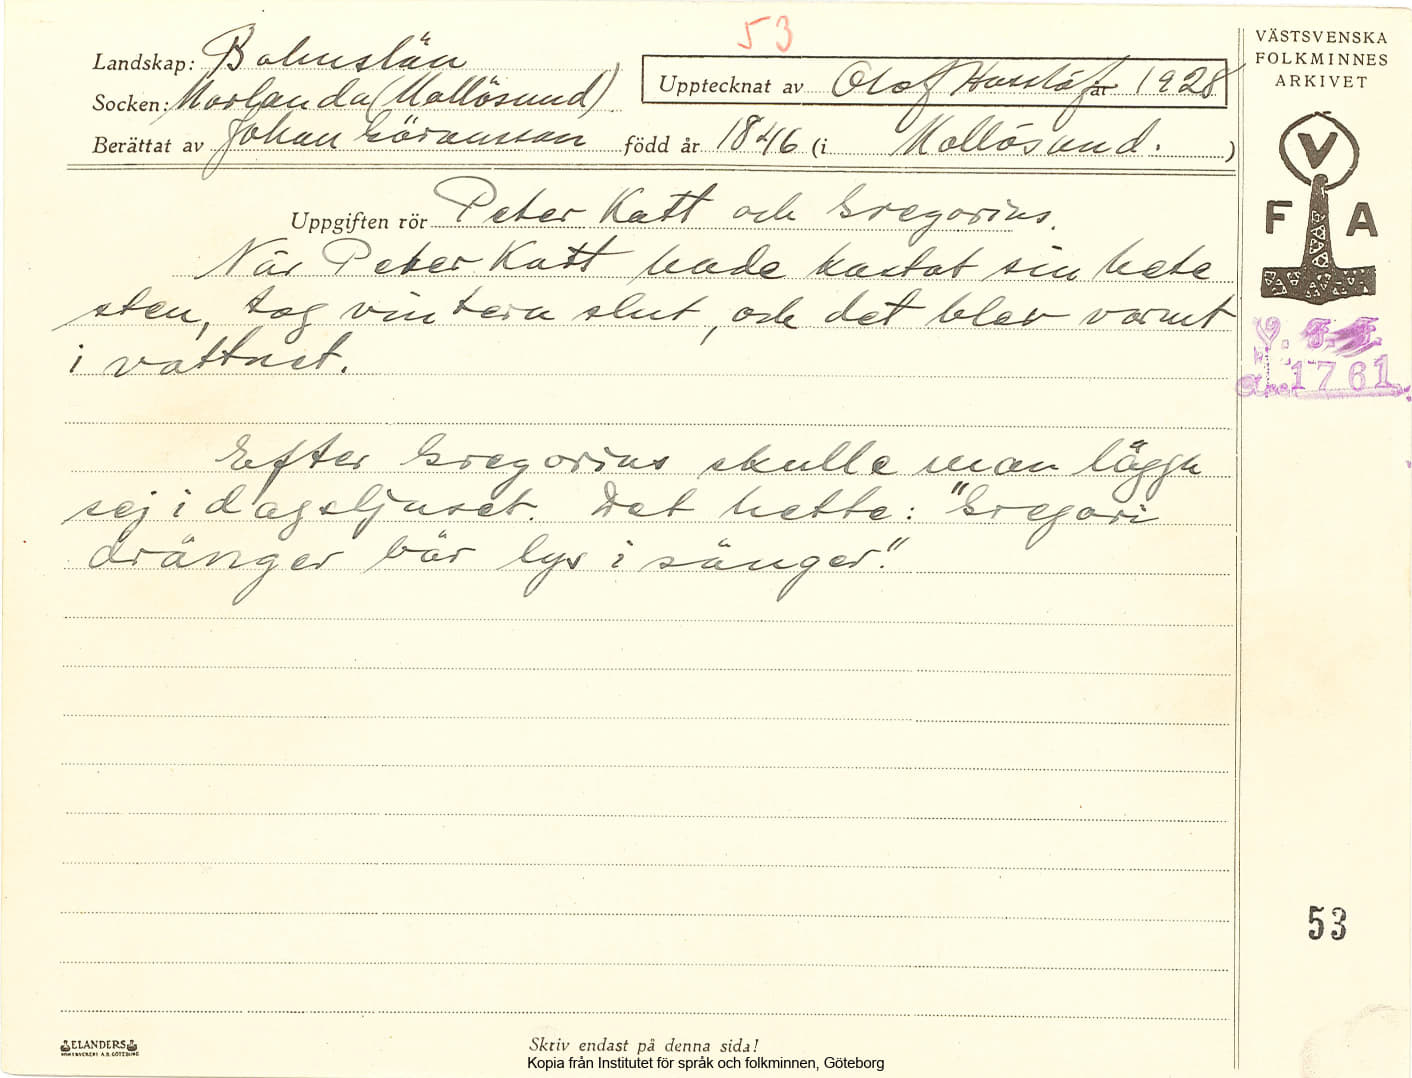 53
Landskap: Bohuslän
Socken: Morlanda (Mollösund)
Upptecknat av Olof Hasslöf år 1928
Berättat av Johan Göransson född år 1846 (i Mollösund. )
Uppgiften rör Peter Katt och Gregorius.
När Peter Katt hade kastat sin hete
sten, tog vintern slut, och det blev varmt
i vattnet.
Efter Gregorius skulle man lägga
sej i dagsljuset. Det hette: "Gregori
dränger bär lys i sänger."
VÄSTSVENSKA
FOLKMINNES
ARKIVET
V
F A
1761
53
ELANDERS
Skriv endast på denna sida!
Kopia från Institutet för språk och folkminnen, Göteborg